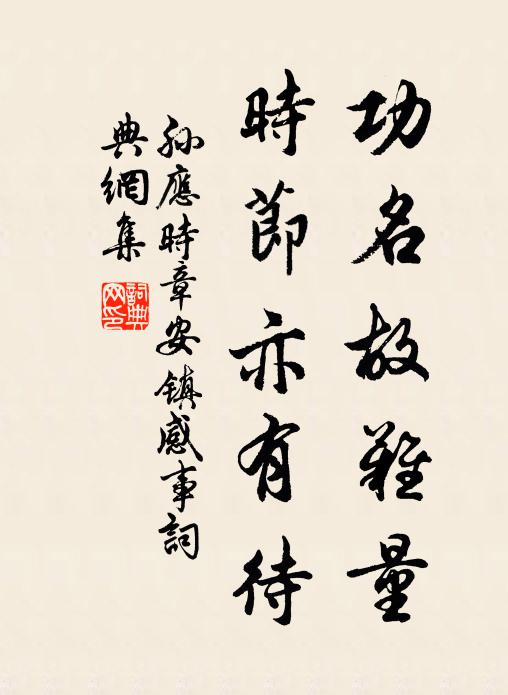 功名故難量
時節亦有待
孫應時章安镇感事詞
典網集
詞典网印